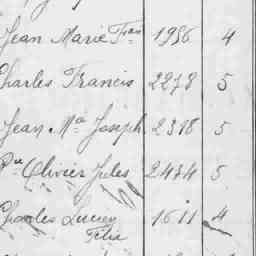 Jean Marie Fran 1956 4
Charles Francis 2278 5
Jean Ma Joseph 2318 5
Olivier Jules 2484 5
Charles Lucien 1611 4
Félix